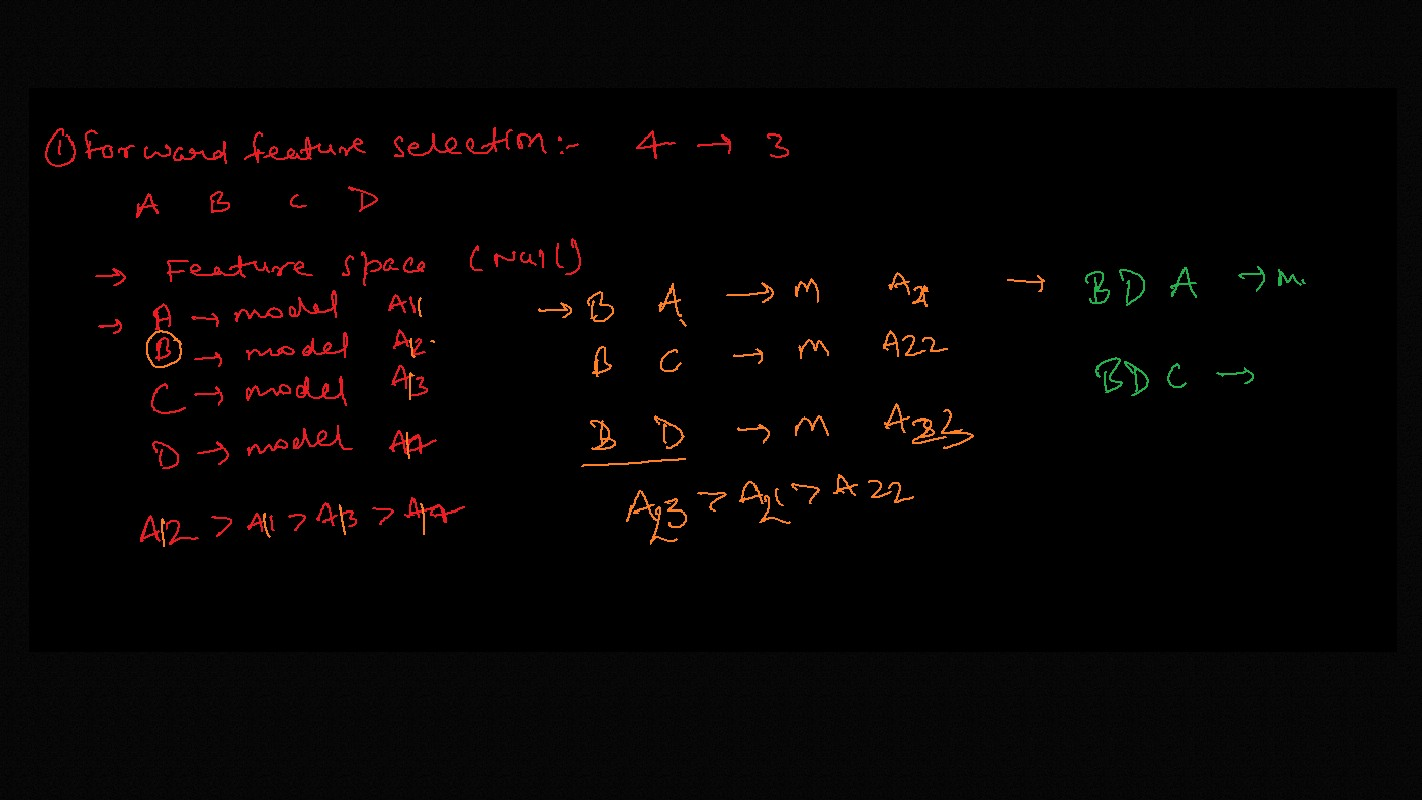 ① Forward feature selection:- 4 → 3
A B C D
→ Feature space (Null)
→ A → model A11
B → model A12
C → model A13
D → model A14
A12 > A11 > A13 > A14
→ B A → M A21
B C → M A22
B D → M
A23 > A21 > A22
→ B D A → M
B D C →